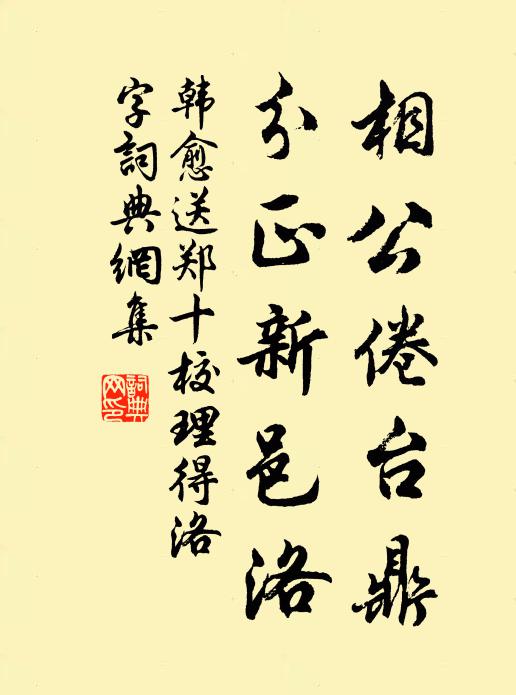 相公倦台鼎
分正新邑洛
韩愈送郑十校理得洛
字詞典網集
詞典网印